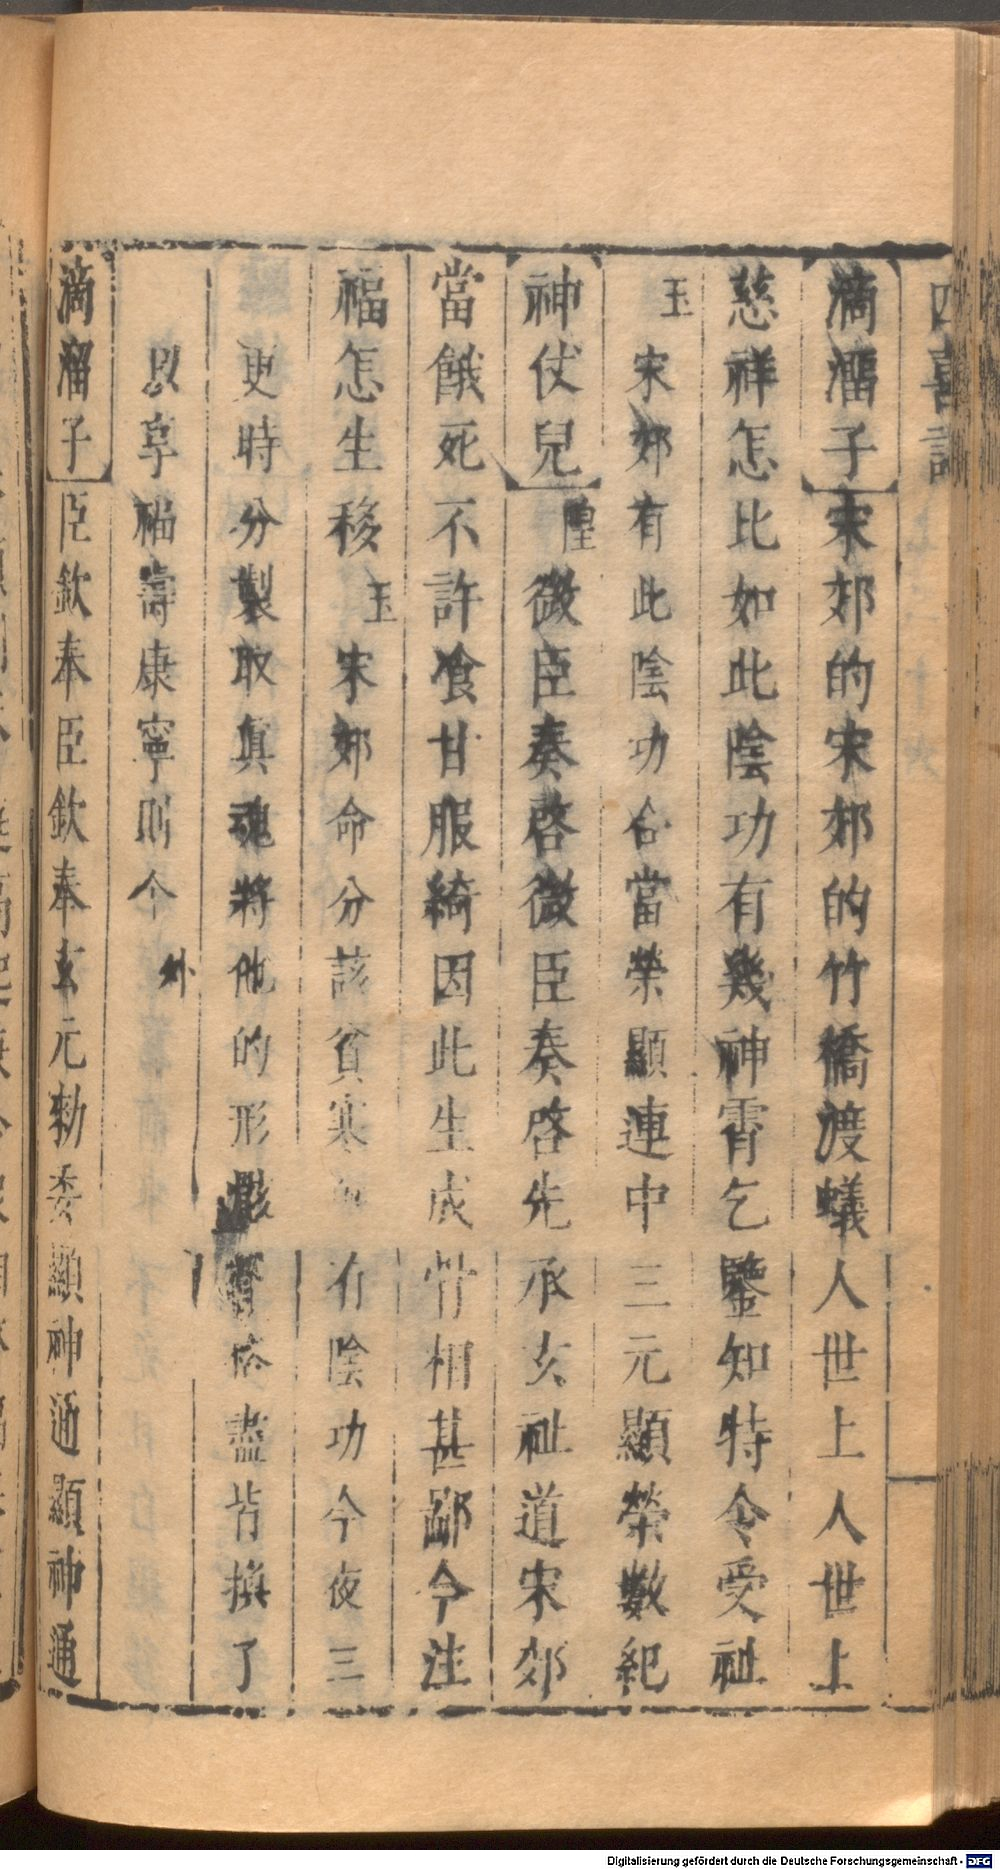 四喜記
滴溜子宋郊的宋郊的竹橋渡蟻人世上人世上
慈祥怎比如此陰功有幾神霄乞鑒知特令受祉
玉宋郊有此陰功合當榮顯連中三元顯榮數紀
神仗兒隍微臣奏啓微臣奏啓先承玄祉道宋郊
當餓死不許飡甘服綺因此生成骨相甚鄙今注
福怎生移玉宋郊命分該貧寒有陰功今夜三
更時分製取真魂將他的形骸盡皆換了
以享福壽康寧則个外
滴溜子臣欽奉臣欽奉玄元勑委顯神通顯神通
Digitalisierung gefördert durch die Deutsche Forschungsgemeinschaft - DFG